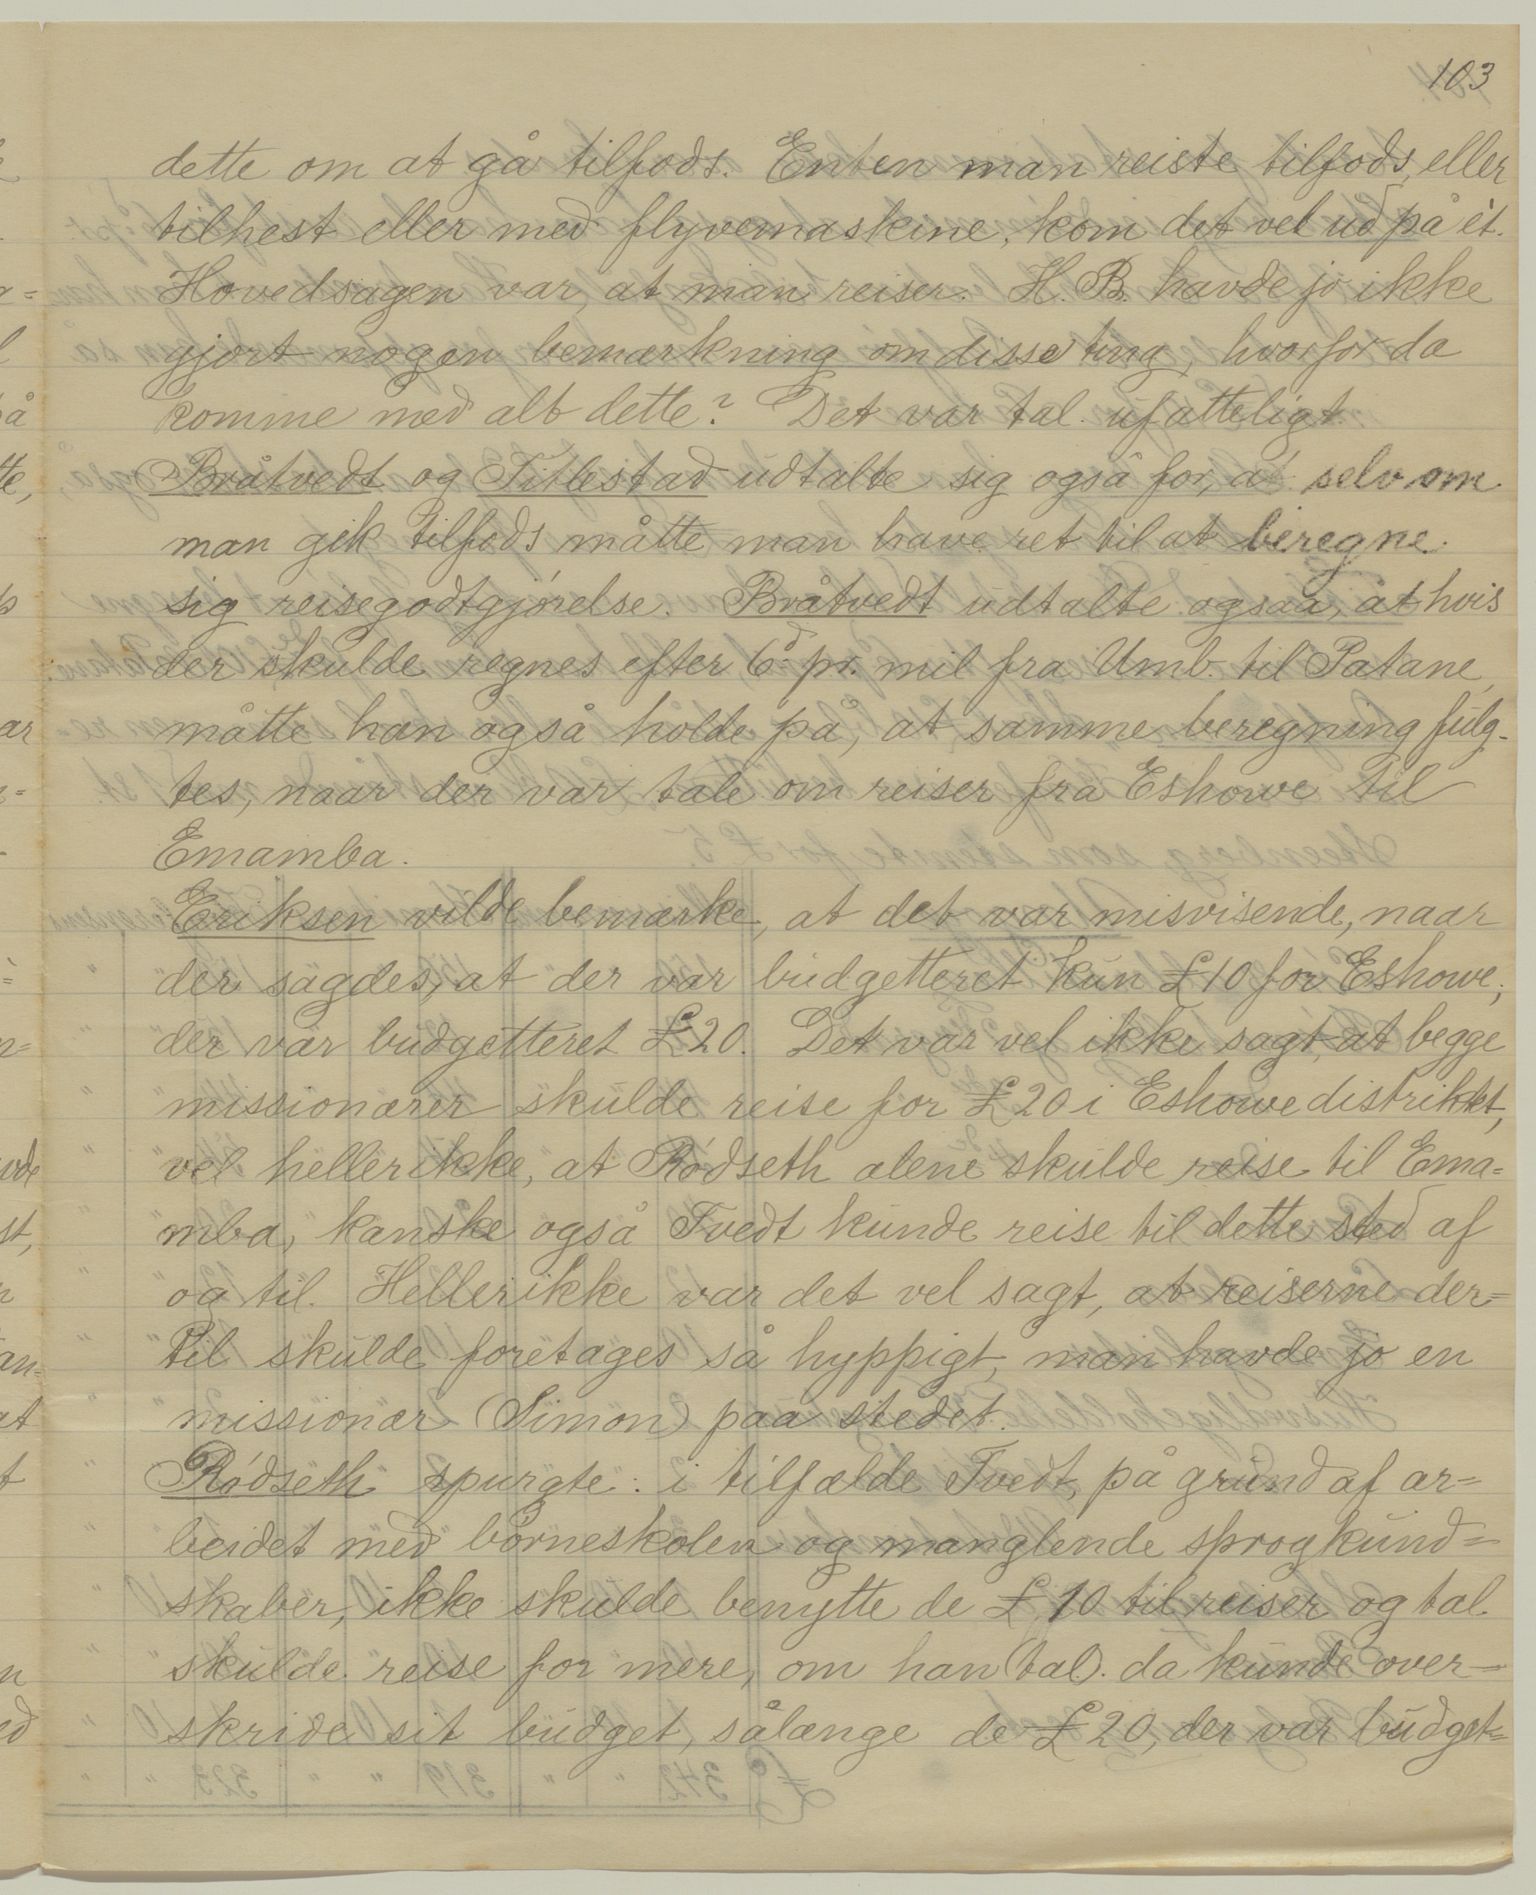 103
dette om at gå tilfods. Enten man reiste tilfods, eller
tilhest eller med flyvemaskine, kom det vel ud på èt.
Hovedsagen var, at man reiser. H. B. havde jo ikke
gjort nogen bemærkning om disse ting, hvorfor da
komme med alt dette? Det var tal. ufatteligt.
Bråtvedt og Titlestad udtalte sig også for, at selv om
man gik tilfods måtte man have ret til at beregne
sig reisegodtgjörelse. Bråtvedt udtalte ogsaa, at hvis
der skulde regnes efter 6d pr. mil fra Umb. til Patane,
måtte han også holde på, at samme beregning fulg-
tes, naar der var tale om reiser fra Eshowe til
Emamba.
Eriksen vilde bemærke, at det var misvisende, naar
der sagdes, at der var budgetteret kun £10 for Eshowe;
der var budgetteret £20. Det var vel ikke sagt, at begge
missionærer skulde reise for £20 i Eshowe distriktet,
vel heller ikke, at Rödseth alene skulde reise til Ema=
mba, kanske også Tvedt kunde reise til dette sted af
og til. Heller ikke var det vel sagt, at reiserne der=
til skulde foretages så hyppigt, man havde jo en
missionær (Simon) paa stedet.
Rödseth spurgte: i tilfælde Tvedt, på grund af ar=
beidet med börneskolen og manglende sprogkund=
skaber, ikke skulde benytte de £10 til reiser og tal.
skulde reise for mere, om han (tal). da kunde over=
skride sit budget, sålænge de £20, der var budget=